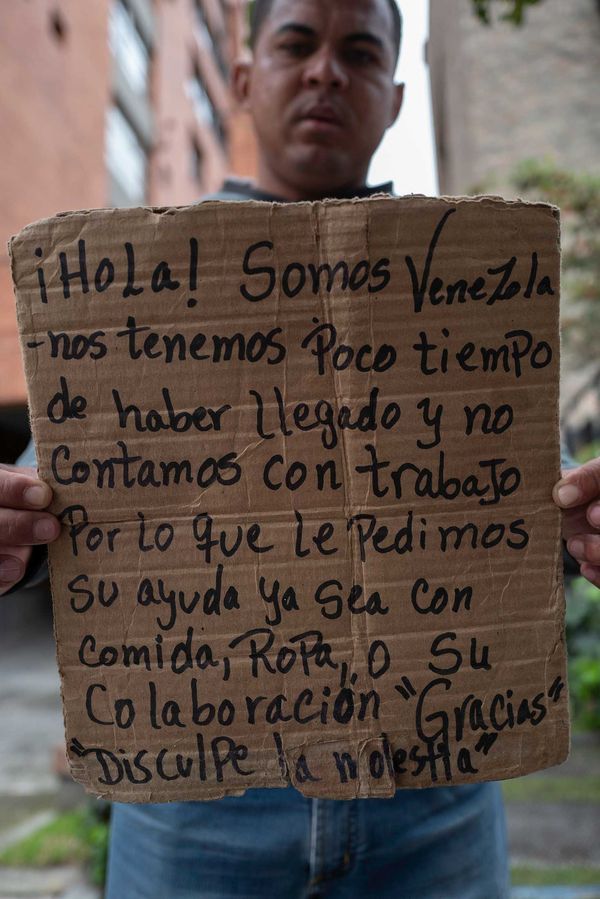 ¡Hola! Somos Venezola
-nos tenemos poco tiempo
de haber llegado y no
contamos con trabajo
Por lo que le pedimos
su ayuda ya sea con
comida, Ropa, o su
Colaboración "Gracias"
"Disculpe la molestia"